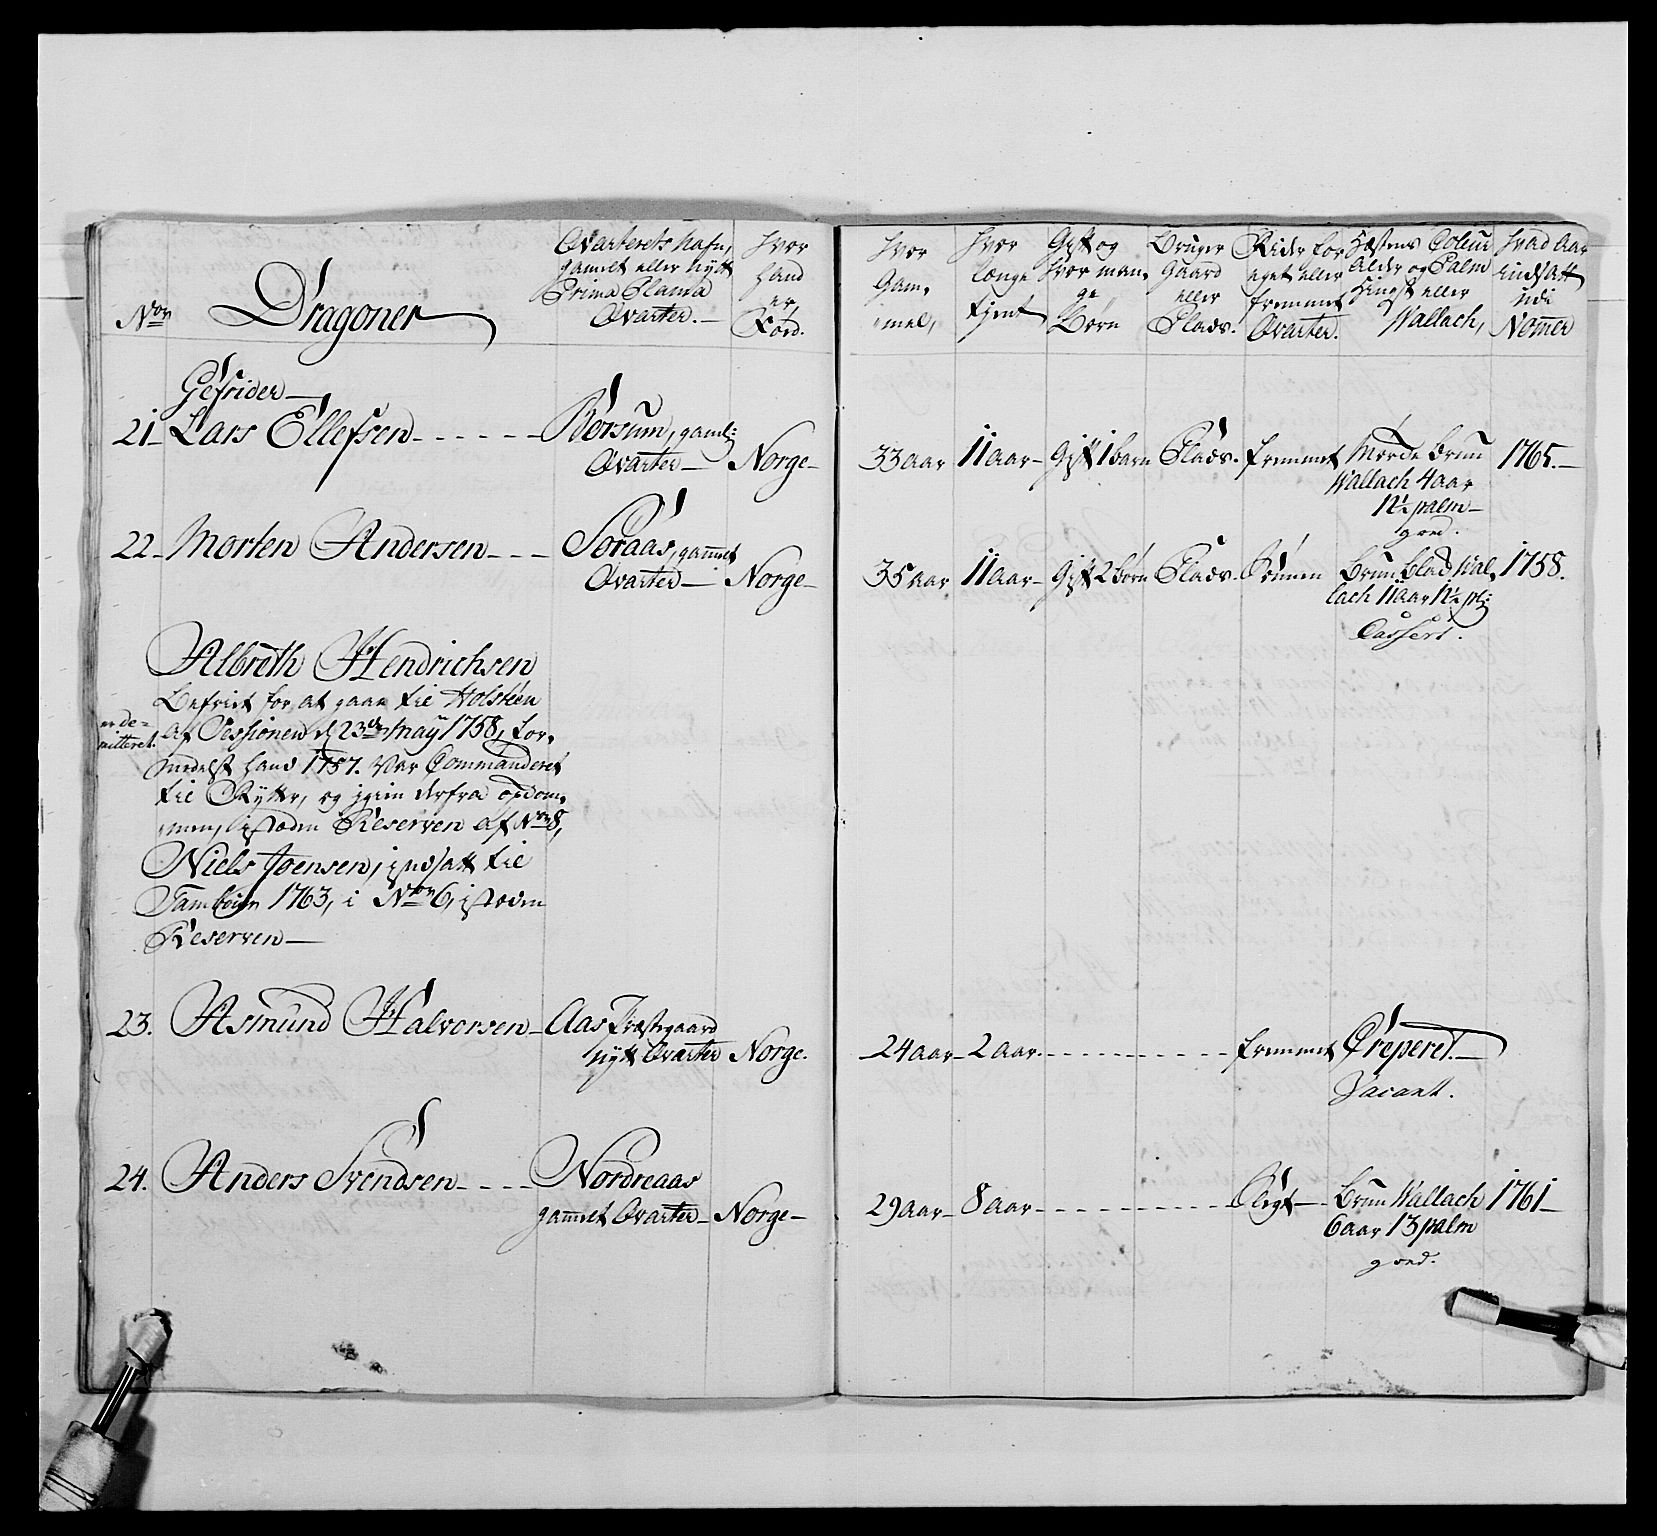 No
Dragoner
Qvarterets Nafn,
gamelt eller nytt
Prima Plana
Qvarter.
hvor
hand
er,
Född.
hvor
Gam,
mel,
hvor
længe
tient
Gift og
hvor man,
ge
Børn
Bruger
Gaard
eller
Plads.
Rider for
eget eller
fremmet
Qvarter.
Hæstens Coleur
Alder og Palm
Hingst eller
Wallach,
hvad Aar
indsatt
udi
Nomer
Gefrider
21 Lars Ellefsen Børsum, gaml:
Qvarter Norge
33 aar 11 aar Gift 1 barn Plads. fremmet Mørde brun 1765.
Wallach 4 aar
12½ palm
god.
22 Morten Andersen Soraas, gammet
Qvarter Norge
35 aar 11 aar Gift 2 børn Plads. Brun Wal, 1758.
lach 11 aar 12½ pl:
Cassert.
Albreth Hendrichsen
Befriet for at gaae til Holsteen
er de-
mitteret.
af Sessionen d 23de May 1758, for,
medelst hand 1757. var Commanderet
til Rytter, og igien derfra
men, isteden Reserven af No 8,
Niels Joensen, indsatt til
Tambour 1763, i No 6, isteden
Reserven
23. Asmund Halvorsen Aas Præstegaard
nytt Qvarter Norge.
24 aar 2 aar. fremmet Creperet.
Vacant.
24. Anders Svendsen Nordreaas
gammet Qvarter Norge
29 aar 8 aar Brun Wallach 1761
6 aar 13 palm
goed.